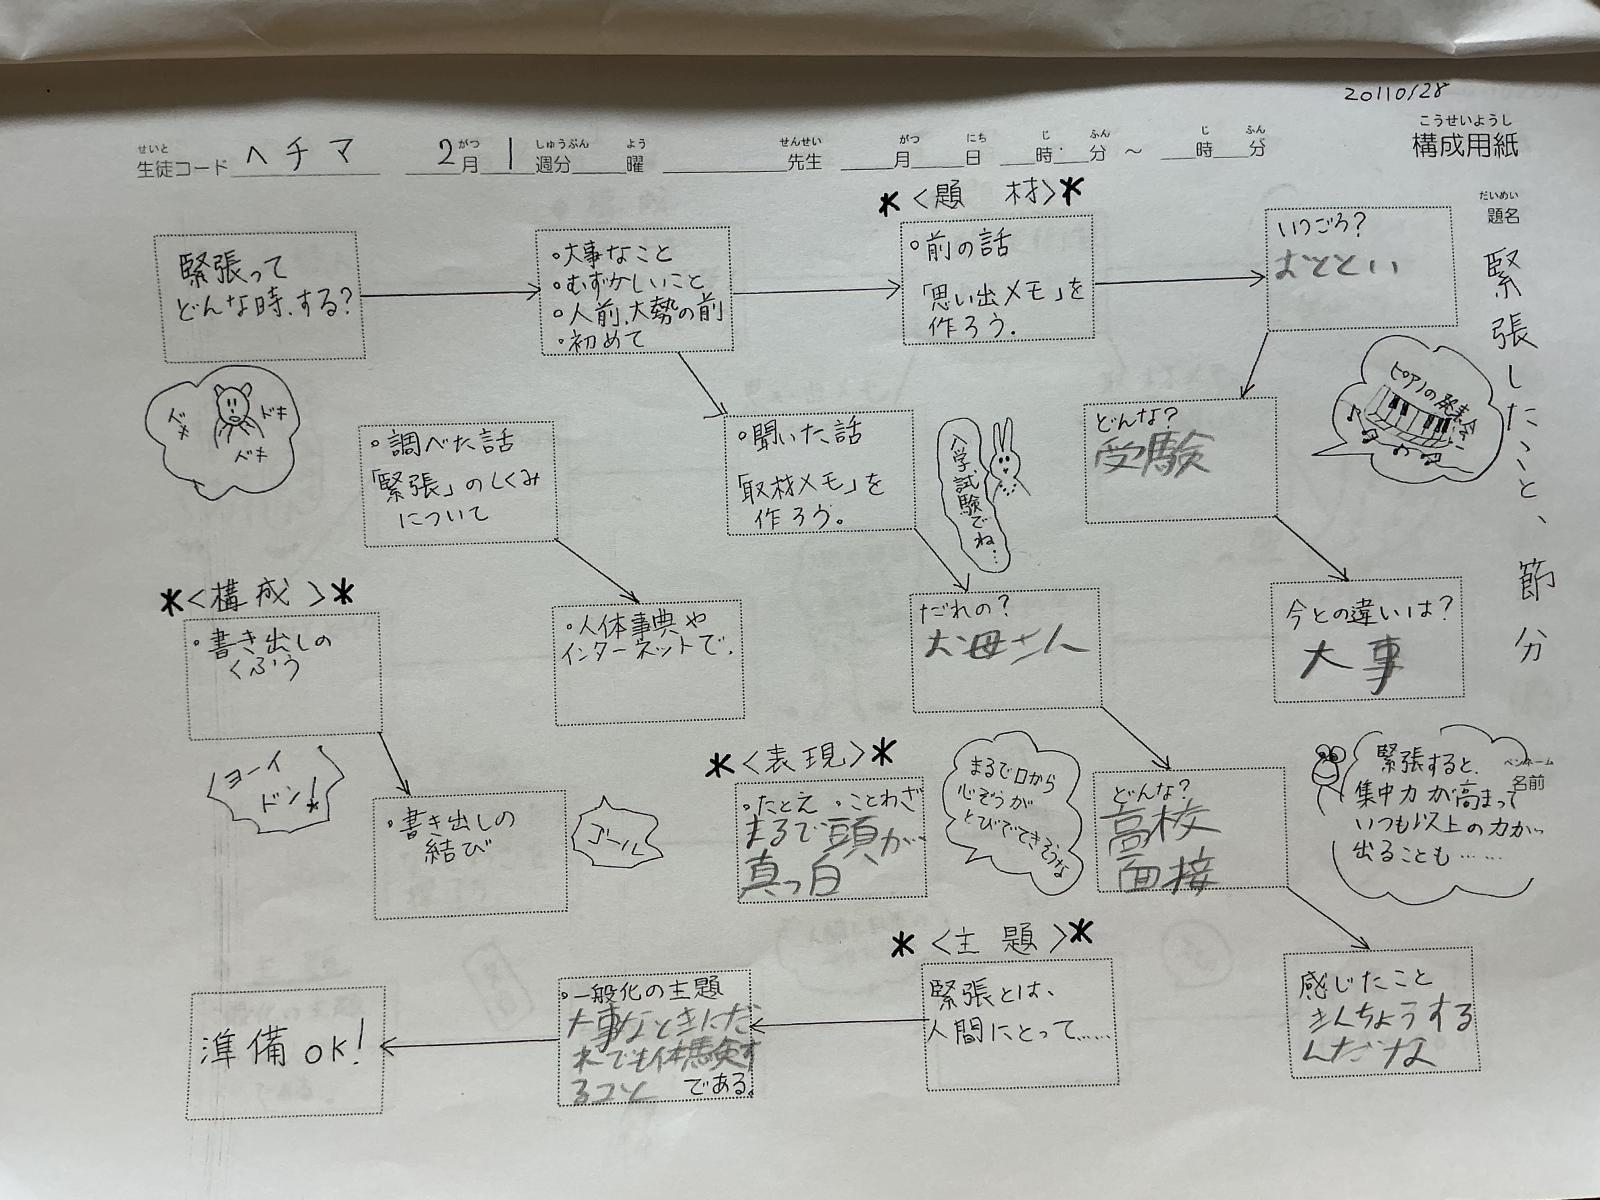 20110128
こうせいようし
構成用紙
せいと がつ しゅうぶん よう せんせい がつ にち じ ふん じ ふん
生徒コード ヘチマ 2月 1週分 曜 先生 月 日 時 分 ～ 時 分
だいめい
題名
緊張したこと、節分
ペンネーム
名前
緊張って
どんな時、する?
ドキ
ドキ
ドキ
・大事なこと
・むずかしいこと
・人前、大勢の前
・初めて
*〈題 材〉*
・前の話
「思い出メモ」を
作ろう.
いつごろ?
おととい
ピアノの発表会
・調べた話
「緊張」のしくみ
について
・聞いた話
「取材メモ」を
作ろう。
入学試験でね…
どんな?
受験
*〈構成〉*
・書き出しの
くふう
・人体事典や
インターネットで.
だれの?
お母さん
今との違いは?
大事
ヨーイ
ドン!
・書き出しの
結び
ゴール
*〈表現〉*
・たとえ ・ことわざ
まるで頭が
真っ白
まるで口から
心ぞうが
とびでてきそうな
どんな?
高校
面接
緊張すると、
集中力が高まって
いつも以上の力が
出ることも……
*〈主題〉*
準備OK!
・一般化の主題
大事なときにだ
れでも体験す
ること である。
緊張とは、
人間にとって……
感じたこと
きんちょうする
んだな